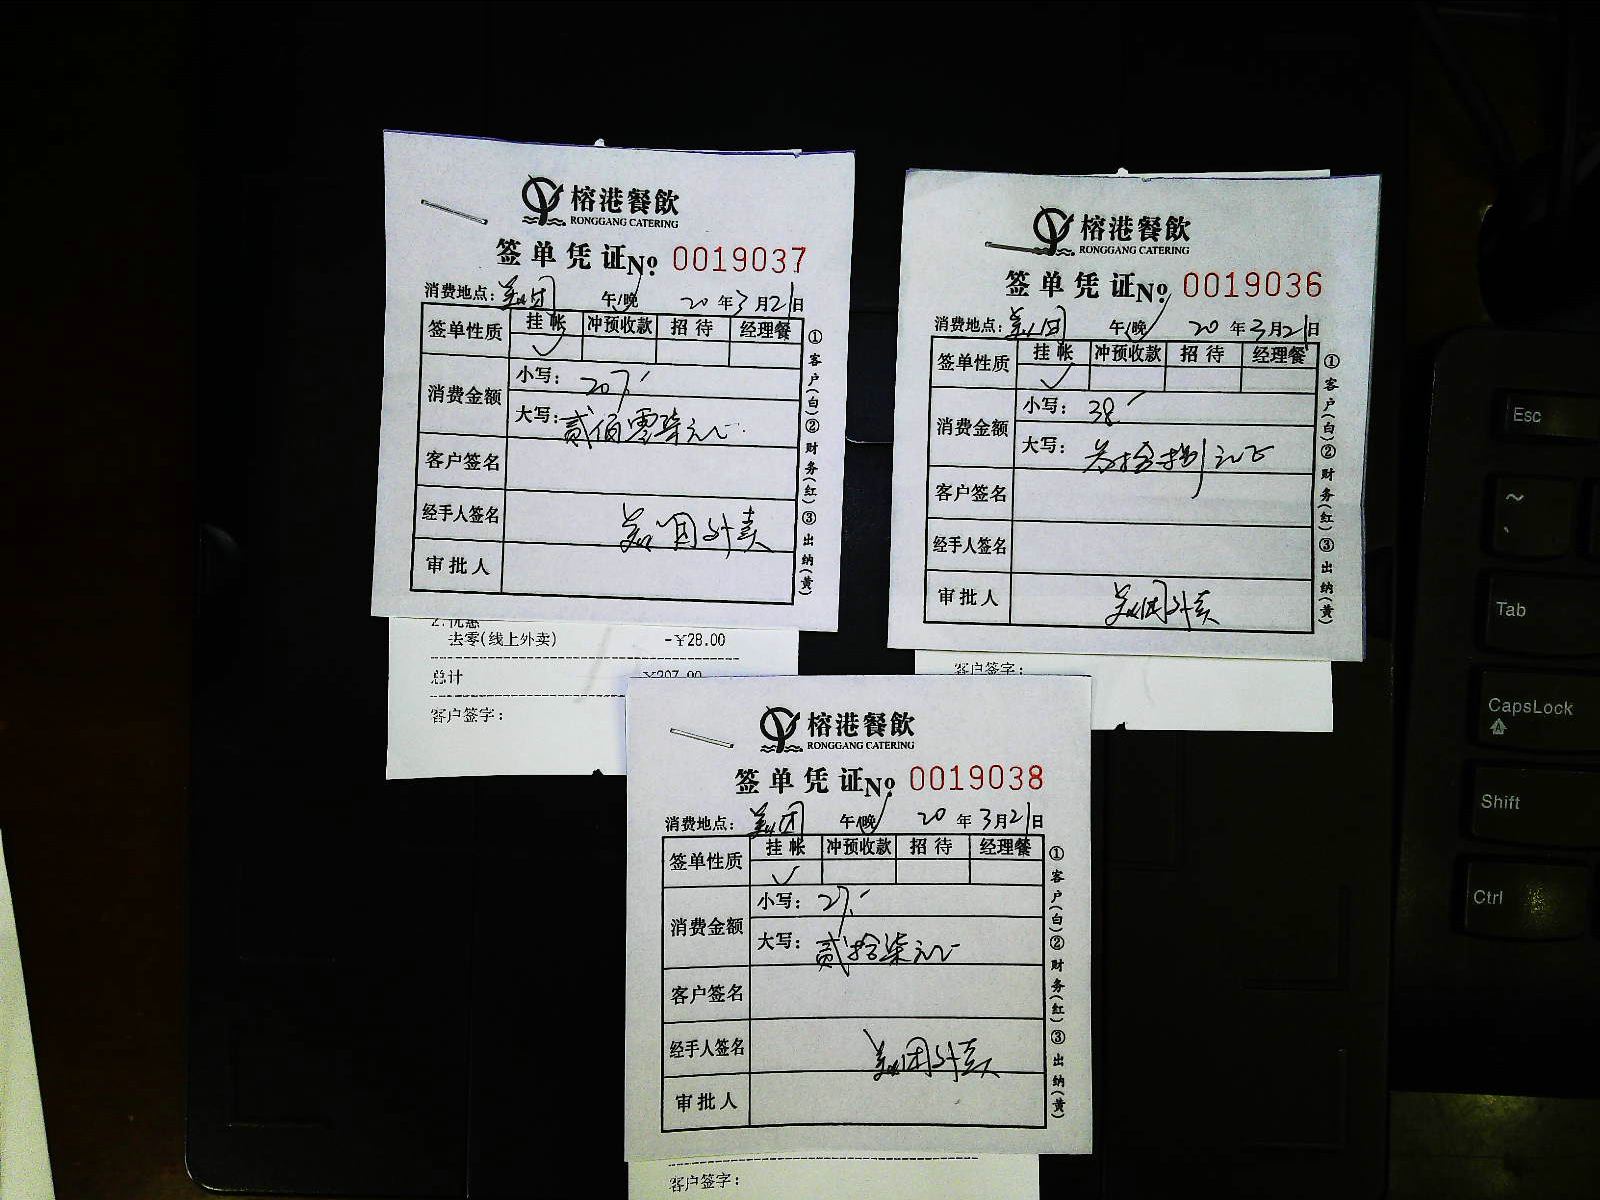 榕港餐飲
RONGGANG CATERING
签单凭证 No. 0019037
消费地点: 美团 午/晚 20年3月21日
签单性质 挂帐 冲预收款 招待 经理餐
✓
消费金额 小写: 207.-
大写: 贰佰零柒元
客户签名
经手人签名 美团外卖
审批人
①客户(白)②财务(红)③出纳(黄)
2.优惠
去零(线上外卖) -¥28.00
总计 ¥207.00
客户签字:
榕港餐飲
RONGGANG CATERING
签单凭证 No. 0019036
消费地点: 美团 午/晚 20年3月21日
签单性质 挂帐 冲预收款 招待 经理餐
✓
消费金额 小写: 38.-
大写: 叁拾捌元正
客户签名
经手人签名
审批人 美团外卖
①客户(白)②财务(红)③出纳(黄)
客户签字:
榕港餐飲
RONGGANG CATERING
签单凭证 No. 0019038
消费地点: 美团 午/晚 20年3月21日
签单性质 挂帐 冲预收款 招待 经理餐
✓
消费金额 小写: 27.-
大写: 贰拾柒元
客户签名
经手人签名 美团外卖
审批人
①客户(白)②财务(红)③出纳(黄)
客户签字:
Esc
~
Tab
CapsLock
Shift
Ctrl